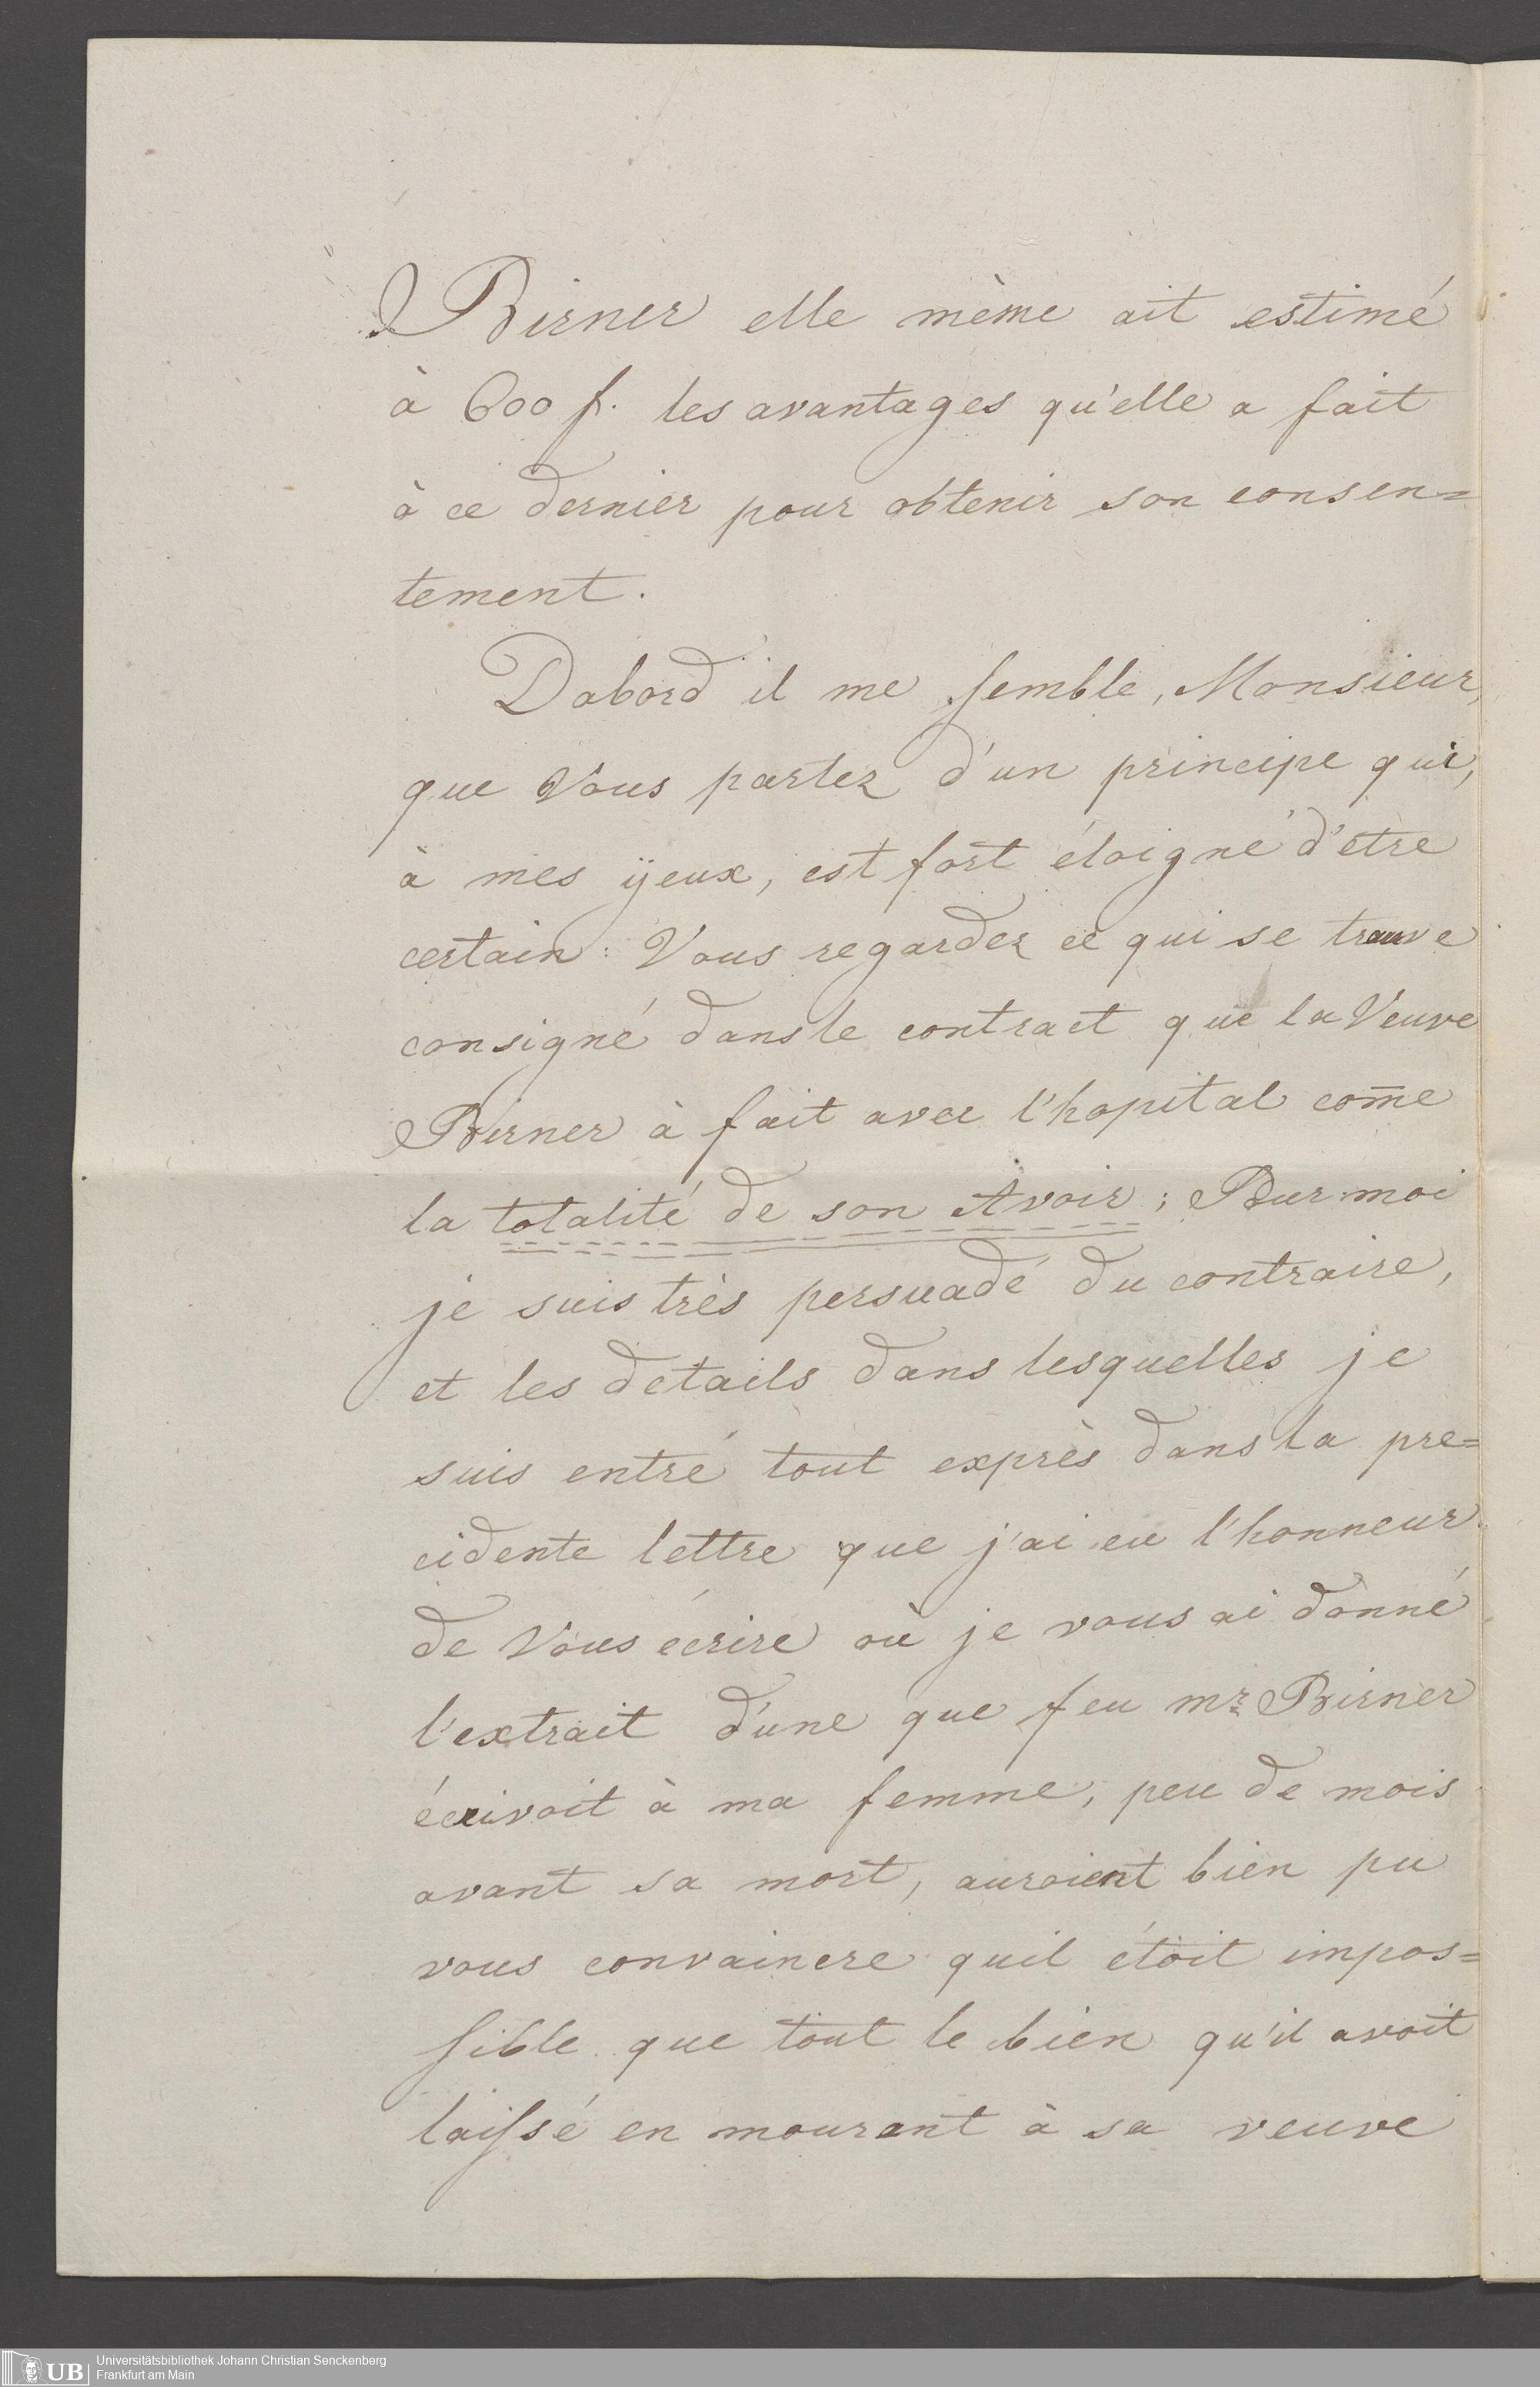 Birner elle mème ait estimé
à 600 f. les avantages qu'elle a fait
à ce dernier pour obtenir son consen=
tement.
Dabord il me semble, Monsieur,
que Vous partez d'un principe qui,
à mes ÿeux, est fort éloigné d'etre
certain: Vous regardez ce qui se trouve
consigné dans le contract que la Veuve
Birner à fait avec l'hopital com̄e
la totalité de son Avoir; Pour moi
je suis très persuadé du contraire,
et les details dans lesquelles je
suis entré tout exprès dans la pre=
cidente lettre que j'ai eu l'honneur
de Vous écrire où je vous ai donné
l'extrait d'une que feu mr Birner
écrivoit à ma femme, peu de mois
avant sa mort, auroient bien pu
vous convaincre quil étoit impos=
sible que tout le bien qu'il avoit
laissé en mourant à sa veuve
UB
Universitätsbibliothek Johann Christian Senckenberg
Frankfurt am Main